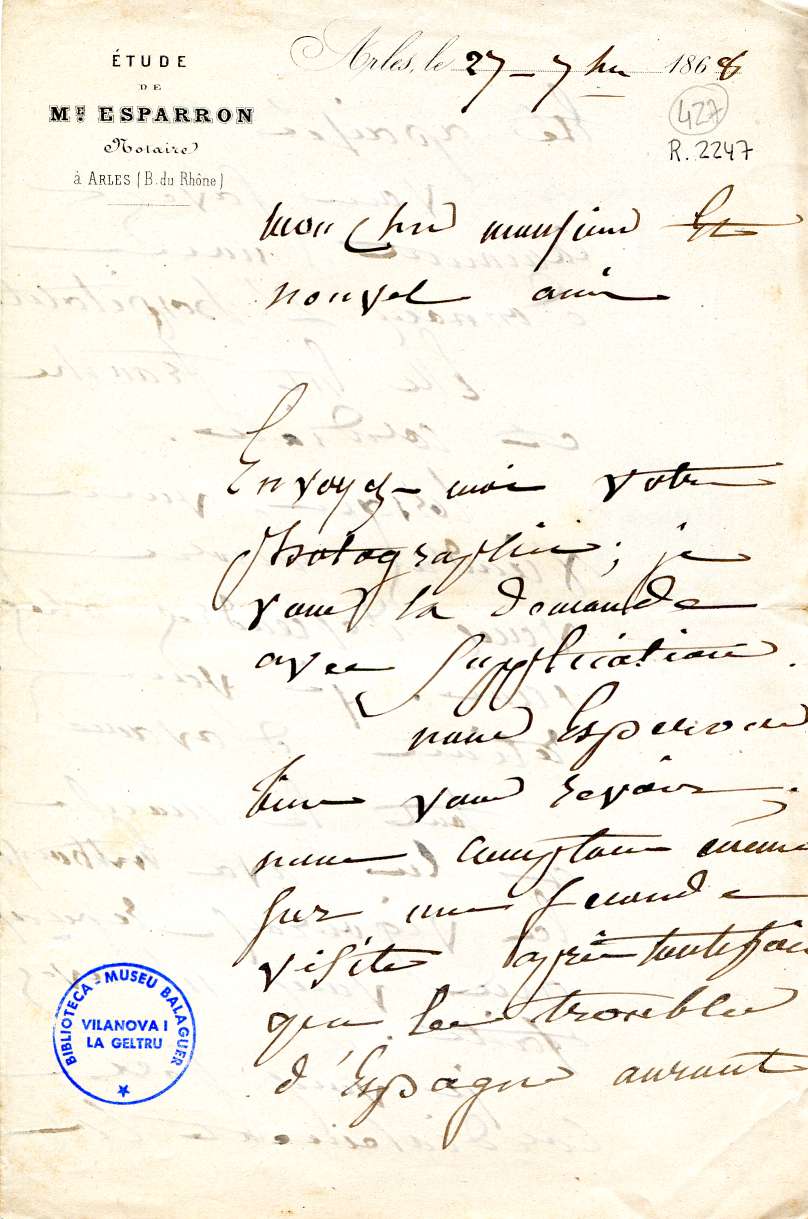 ÉTUDE
DE
Me ESPARRON
Notaire
à ARLES (B. du Rhône)
Arles, le 27 - 7bre 1868
427
R. 2247
mon cher monsieur et
nouvel ami
Envoyez-moi votre
photographie ; je
vous la demande
avec supplication.
nous Esperons
bien vous revoir,
nous comptons même
sur une seconde
visite après toutefois
que les troubles
d'Espagne auront
BIBLIOTECA - MUSEU BALAGUER
VILANOVA I
LA GELTRU